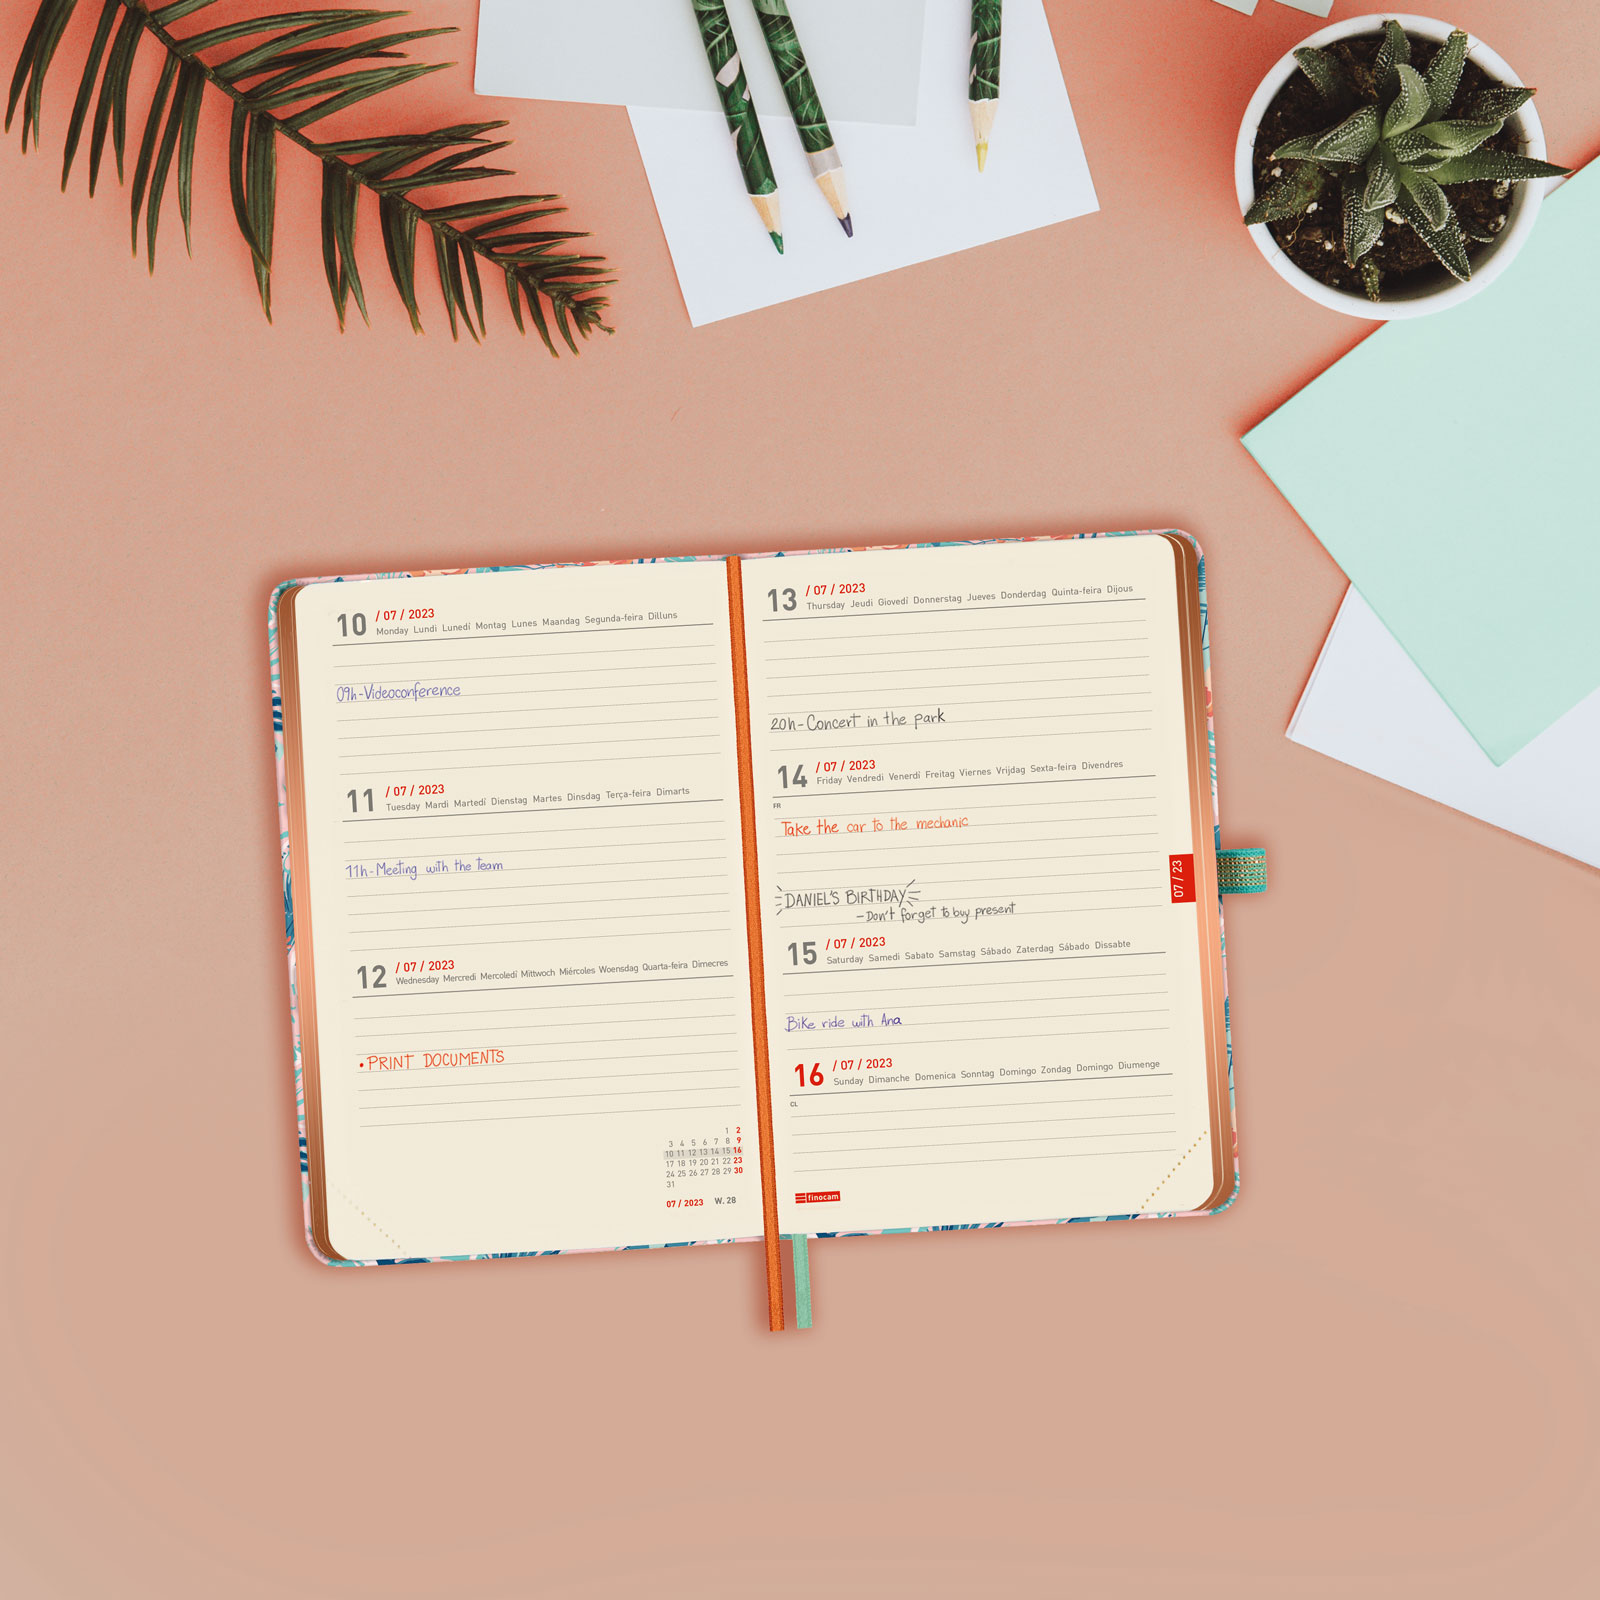 10 / 07 / 2023
Monday Lundi Lunedí Montag Lunes Maandag Segunda-feira Dilluns
09h-Videoconference
11 / 07 / 2023
Tuesday Mardi Martedí Dienstag Martes Dinsdag Terça-feira Dimarts
11h-Meeting with the team
12 / 07 / 2023
Wednesday Mercredi Mercoledí Mittwoch Miércoles Woensdag Quarta-feira Dimecres
• PRINT DOCUMENTS
1 2
3 4 5 6 7 8 9
10 11 12 13 14 15 16
17 18 19 20 21 22 23
24 25 26 27 28 29 30
31
07 / 2023 W. 28
13 / 07 / 2023
Thursday Jeudi Giovedí Donnerstag Jueves Donderdag Quinta-feira Dijous
20h-Concert in the park
14 / 07 / 2023
Friday Vendredi Venerdí Freitag Viernes Vrijdag Sexta-feira Divendres
FR
Take the car to the mechanic
DANIEL'S BIRTHDAY
-Don't forget to buy present
07 / 23
15 / 07 / 2023
Saturday Samedi Sabato Samstag Sábado Zaterdag Sábado Dissabte
Bike ride with Ana
16 / 07 / 2023
Sunday Dimanche Domenica Sonntag Domingo Zondag Domingo Diumenge
CL
finocam